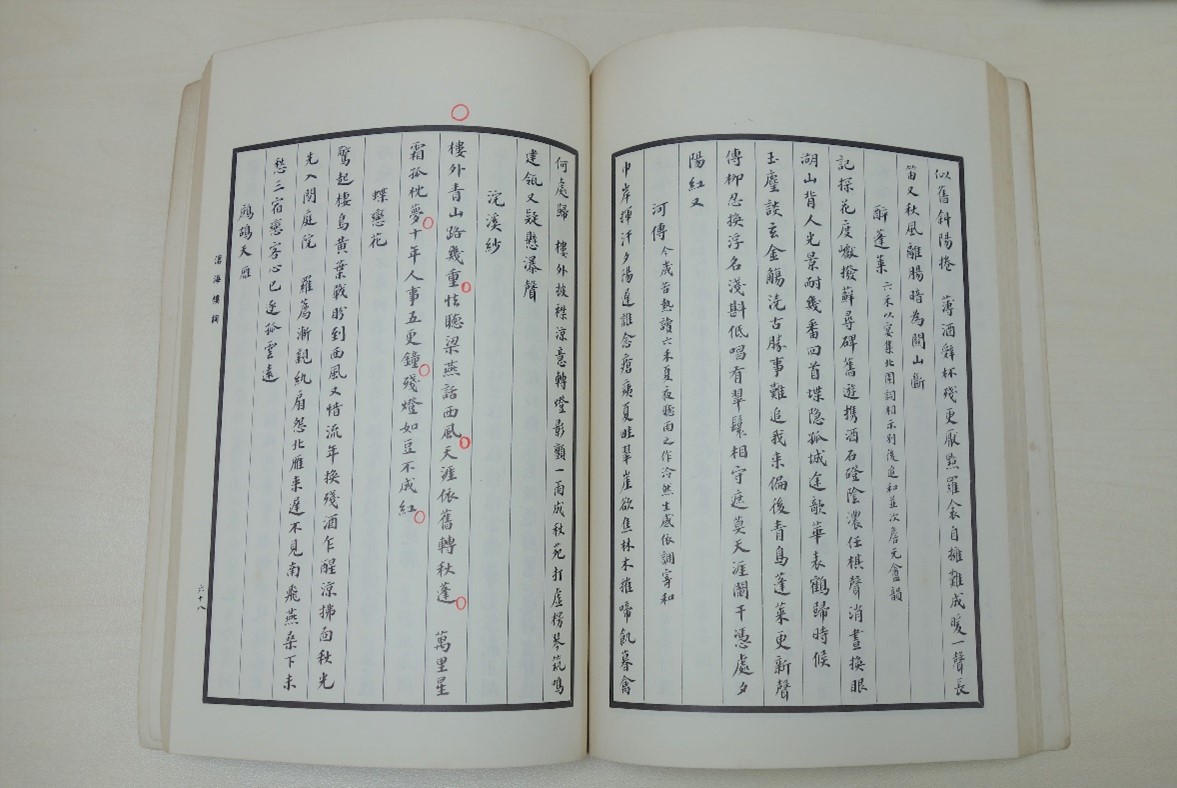 似舊斜陽捲　薄酒辭杯殘更厭點羅衾自擁難成暖一聲長
笛又秋風離腸暗為關山斷
醉蓬萊 六禾以宴集北園詞相示別後追和並次詹元龠韻
記探花度巘撥蘚尋碑舊遊携酒石磴陰濃任棋聲消晝換眼
湖山背人光景耐幾番回首堞隱孤城途歌華表鶴歸時候
玉麈談玄金觴澆古勝事難追我来偏後青鳥蓬萊更新聲
傳柳忍換浮名淺斟低唱有翠鬟相守遮莫天涯闌干憑處夕
陽紅又
河傳 今歲苦熱讀六禾夏夜聽雨之作泠然生感依調寄和
巾岸揮汗夕陽遲誰念瘡痍夏畦翠崖欲焦林木摧啼飢暮禽
何處歸　樓外披襟涼意轉燈影顫一雨成秋苑打虛櫺琴筑鳴
建瓴又疑懸瀑聲
浣溪紗
樓外青山路幾重怯聽梁燕話西風天涯依舊轉秋蓬　萬里星
霜孤枕夢十年人事五更鐘殘燈如豆不成紅
蝶戀花
驚起棲鳥黃葉戰盼到西風又惜流年換殘酒乍醒涼拂面秋光
先入閑庭院　羅薦漸親紈扇怨北雁来遲不見南飛燕桑下未
愁三宿戀客心已逐孤雲遠
鷓鴣天 雁
滄海樓詞
六十八